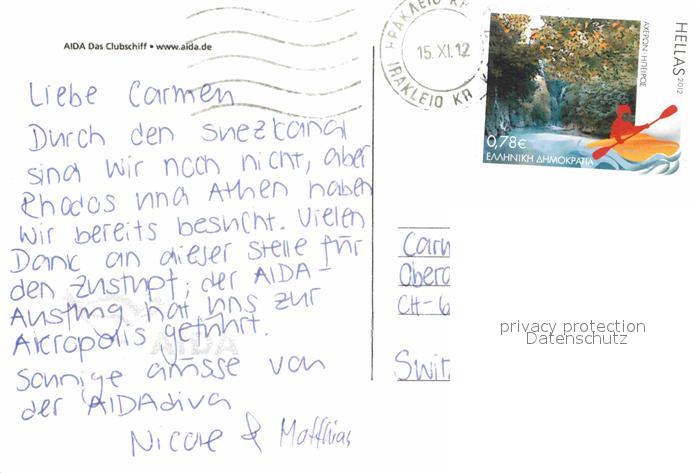 AIDA Das Clubschiff • www.aida.de
Liebe Carmen
Durch den Suezkanal
sind wir noch nicht, aber
Rhodos und Athen haben
wir bereits besucht. Vielen
Dank an dieser Stelle für
den Zustupf; der AIDA-
Ausflug hat uns zur
Akropolis geführt.
Sonnige Grüsse von
der AIDAdiva
Nicole & Matthias
AIDA
ΗΡΑΚΛΕΙΟ ΚΡ
15. XI. 12
IRAKLEIO KR
HELLAS 2012
ΑΧΕΡΩΝ - ΗΠΕΙΡΟΣ
0,78€
ΕΛΛΗΝΙΚΗ ΔΗΜΟΚΡΑΤΙΑ
Carm
Ober
CH-6
Swit
privacy protection
Datenschutz